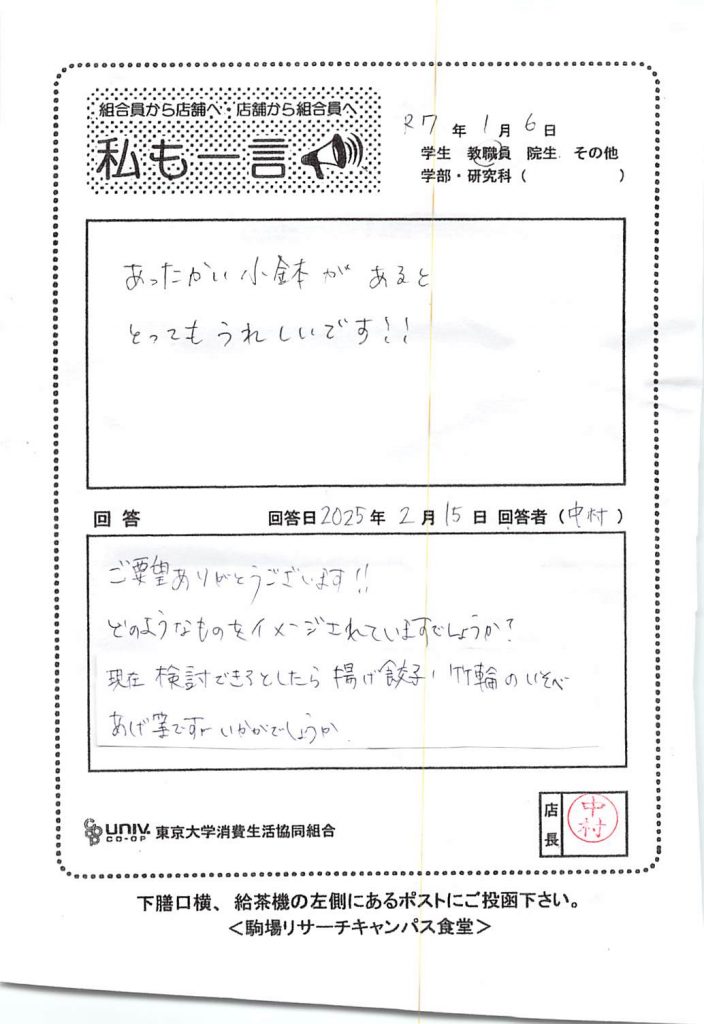 組合員から店舗へ・店舗から組合員へ
私も一言
R7年1月6日
学生 教職員 院生 その他
学部・研究科（ ）
あったかい小鉢が あると
とっても うれしいです!!
回答 回答日2025年2月15日 回答者（中村）
ご要望ありがとうございます!!
どのようなものをイメージされていますでしょうか?
現在 検討できるとしたら 揚げ餃子・竹輪のいそべ
あげ等ですが いかがでしょうか
UNIV.
CO-OP
東京大学消費生活協同組合
店長
中村
下膳口横、給茶機の左側にあるポストにご投函下さい。
＜駒場リサーチキャンパス食堂＞